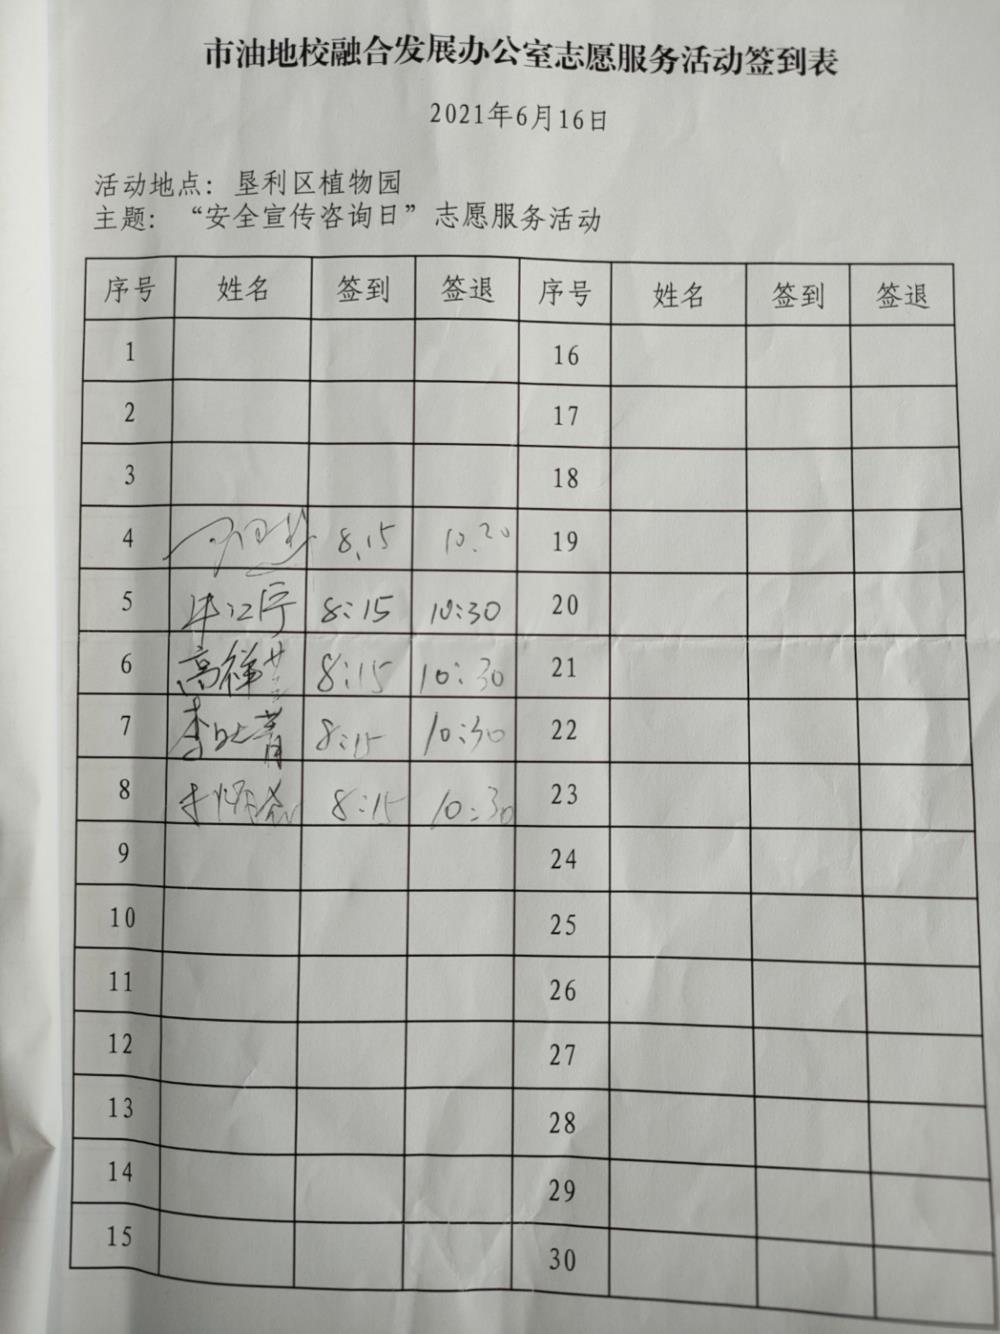 市油地校融合发展办公室志愿服务活动签到表
2021年6月16日
活动地点：垦利区植物园
主题：“安全宣传咨询日”志愿服务活动
序号 姓名 签到 签退 序号 姓名 签到 签退
1 16
2 17
3 18
4 8.15 10.20 19
5 8:15 10:30 20
6 高 8:15 10:30 21
7 李 8:15 10:30 22
8 8:15 10:30 23
9 24
10 25
11 26
12 27
13 28
14 29
15 30